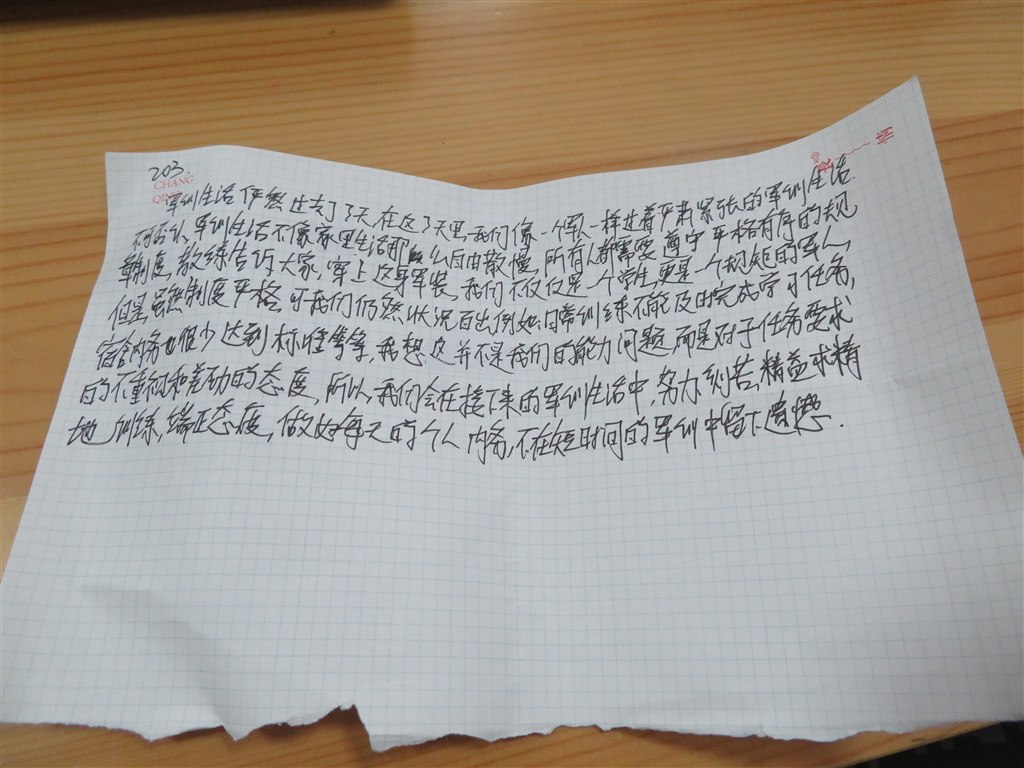 203.
CHANG
QING
军训生活俨然过去了3天,在这3天里,我们像一个军人一样过着严肃紧张的军训生活.
不可否认,军训生活不像家里生活那么自由散慢,所有人都需要遵守严格有序的规
章制度,教练告诉大家,穿上这身军装,我们不仅仅是一个学生,更是一个规矩的军人,
但是,虽然制度严格,可我们仍然状况百出,例如:日常训练不能及时完成学习任务,
宿舍内务也很少达到标准等等,我想这并不是我们的能力问题,而是对于任务要求
的不重视和差劲的态度,所以,我们会在接下来的军训生活中,努力刻苦,精益求精
地训练,端正态度,做好每天的个人内务,不在短时间的军训中留下遗憾.